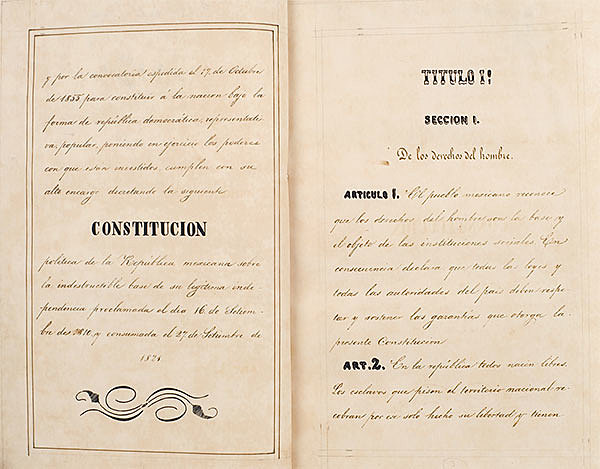 y por la convocatoria espedida el 17 de Octubre
de 1855 para constituir á la nacion bajo la
forma de república democrática, representati
va, popular, poniendo en ejercicio los poderes
con que estan investidos, cumplen con su
alto encargo decretando la siguiente
CONSTITUCION
política de la República mexicana sobre
la indestructible base de su legítima inde-
pendencia proclamada el dia 16 de Setiem-
bre de 1810, y consumada el 27 de Setiembre de
1821
TITULO 1º
SECCION 1.
De los derechos del hombre.
ARTICULO 1. El pueblo mexicano reconoce
que los derechos del hombre son la base y
el objeto de las instituciones sociales. En
consecuencia declara que todas las leyes y
todas las autoridades del pais deben respe
tar y sostener las garantías que otorga la
presente Constitucion
ART. 2. En la república todos nacen libres.
Los esclavos que pisen el territorio nacional re-
cobran por ese solo hecho su libertad, y tienen